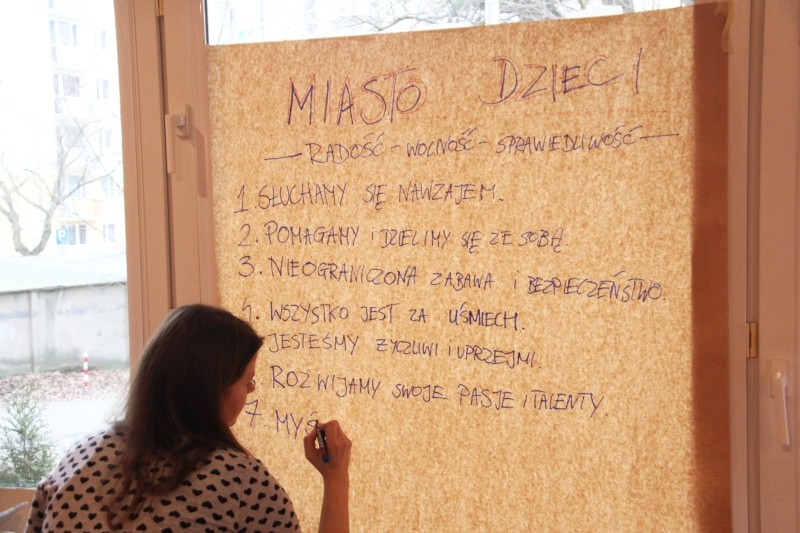 MIASTO DZIECI
— RADOŚĆ - WOLNOŚĆ - SPRAWIEDLIWOŚĆ —
1 SŁUCHAMY SIĘ NAWZAJEM.
2. POMAGAMY i DZIELIMY SIĘ ZE SOBĄ.
3. NIEOGRANICZONA ZABAWA i BEZPIECZEŃSTWO.
WSZYSTKO JEST ZA UŚMIECH.
JESTEŚMY ŻYCZLIWI i UPRZEJMI.
ROZWIJAMY SWOJE PASJE i TALENTY.
7. MYŚ